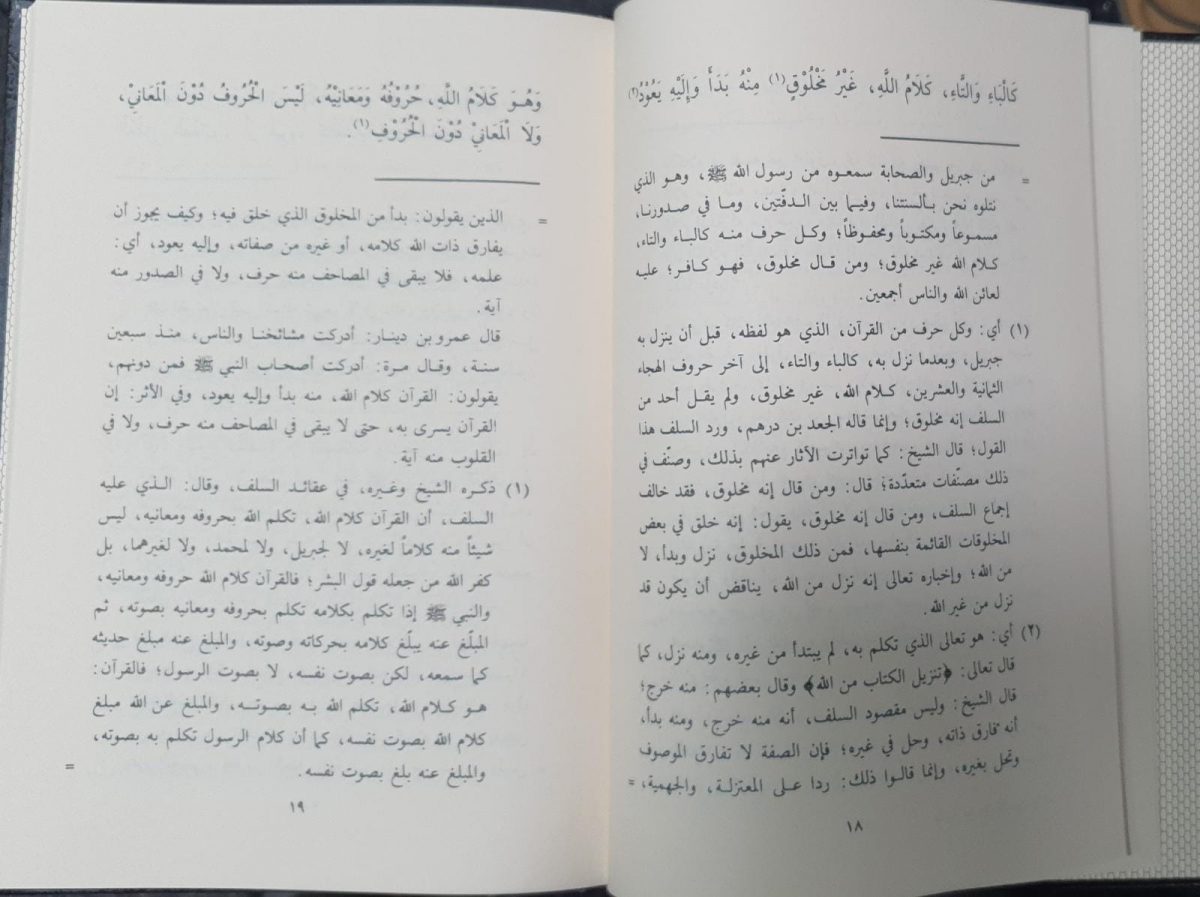 كَالْبَاءِ وَالتَّاءِ، كَلَامُ اللَّهِ، غَيْرُ مَخْلُوْقٍ(١) مِنْهُ بَدَأَ وَإِلَيْهِ يَعُوْدُ(٢)
= من جبريل والصحابة سمعوه من رسول الله ﷺ، وهو الذي
نتلوه نحن بألسنتنا، وفيما بين الدفّتين، وما في صدورنا،
مسموعاً ومكتوباً ومحفوظاً؛ وكل حرف منه كالباء والتاء،
كلام الله غير مخلوق؛ ومن قال مخلوق، فهو كافر؛ عليه
لعائن الله والناس أجمعين.
(١) أي: وكل حرف من القرآن، الذي هو لفظه، قبل أن ينزل به
جبريل، وبعدما نزل به، كالباء والتاء، إلى آخر حروف الهجاء
الثمانية والعشرين، كلام الله، غير مخلوق، ولم يقل أحد من
السلف إنه مخلوق؛ وإنما قاله الجعد بن درهم، ورد السلف هذا
القول؛ قال الشيخ: كما تواترت الآثار عنهم بذلك، وصنّف في
ذلك مصنّفات متعدّدة؛ قال: ومن قال إنه مخلوق، فقد خالف
إجماع السلف، ومن قال إنه مخلوق، يقول: إنه خلق في بعض
المخلوقات القائمة بنفسها، فمن ذلك المخلوق، نزل وبدأ، لا
من الله؛ وإخباره تعالى إنه نزل من الله، يناقض أن يكون قد
نزل من غير الله.
(٢) أي: هو تعالى الذي تكلم به، لم يبتدأ من غيره، ومنه نزل، كما
قال تعالى: ﴿تنزيل الكتاب من الله﴾ وقال بعضهم: منه خرج؛
قال الشيخ: وليس مقصود السلف، أنه منه خرج، ومنه بدأ،
أنه فارق ذاته، وحل في غيره؛ فإن الصفة لا تفارق الموصوف
وتحل بغيره، وإنما قالوا ذلك: ردا على المعتزلة، والجهمية، =
١٨
وَهُوَ كَلَامُ اللَّهِ، حُرُوْفُهُ وَمَعَانِيْهُ، لَيْسَ الْحُرُوفُ دُوْنَ الْمَعَانِيْ،
وَلَا الْمَعَانِيْ دُوْنَ الْحُرُوْفِ(١).
= الذين يقولون: بدأ من المخلوق الذي خلق فيه؛ وكيف يجوز أن
يفارق ذات الله كلامه، أو غيره من صفاته، وإليه يعود، أي:
علمه، فلا يبقى في المصاحف منه حرف، ولا في الصدور منه
آية.
قال عمرو بن دينار: أدركت مشائخنا والناس، منذ سبعين
سنة، وقال مرة: أدركت أصحاب النبي ﷺ فمن دونهم،
يقولون: القرآن كلام الله، منه بدأ وإليه يعود، وفي الأثر: إن
القرآن يسرى به، حتى لا يبقى في المصاحف منه حرف، ولا في
القلوب منه آية.
(١) ذكره الشيخ وغيره، في عقائد السلف، وقال: الذي عليه
السلف، أن القرآن كلام الله، تكلم الله بحروفه ومعانيه، ليس
شيئاً منه كلاماً لغيره، لا لجبريل، ولا لمحمد، ولا لغيرهما، بل
كفر الله من جعله قول البشر؛ فالقرآن كلام الله حروفه ومعانيه،
والنبي ﷺ إذا تكلم بكلامه تكلم بحروفه ومعانيه بصوته، ثم
المبلّغ عنه يبلّغ كلامه بحركاته وصوته، والمبلغ عنه مبلغ حديثه
كما سمعه، لكن بصوت نفسه، لا بصوت الرسول؛ فالقرآن:
هو كلام الله، تكلم الله به بصوته، والمبلغ عن الله مبلغ
كلام الله بصوت نفسه، كما أن كلام الرسول تكلم به بصوته،
والمبلغ عنه بلغ بصوت نفسه. =
١٩